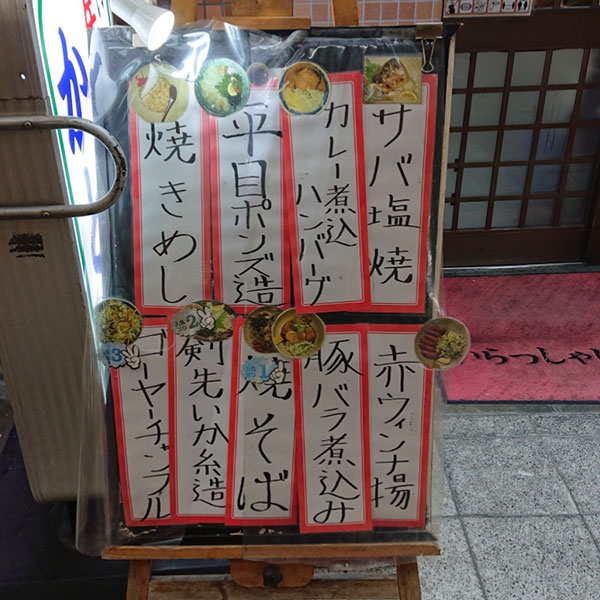 サバ塩焼
カレー煮込
ハンバーグ
平目ポンズ造
焼きめし
赤ウィンナ揚
豚バラ煮込み
焼そば
剣先いか糸造
ゴーヤーチャンプル
1
2
3
からっしゃい